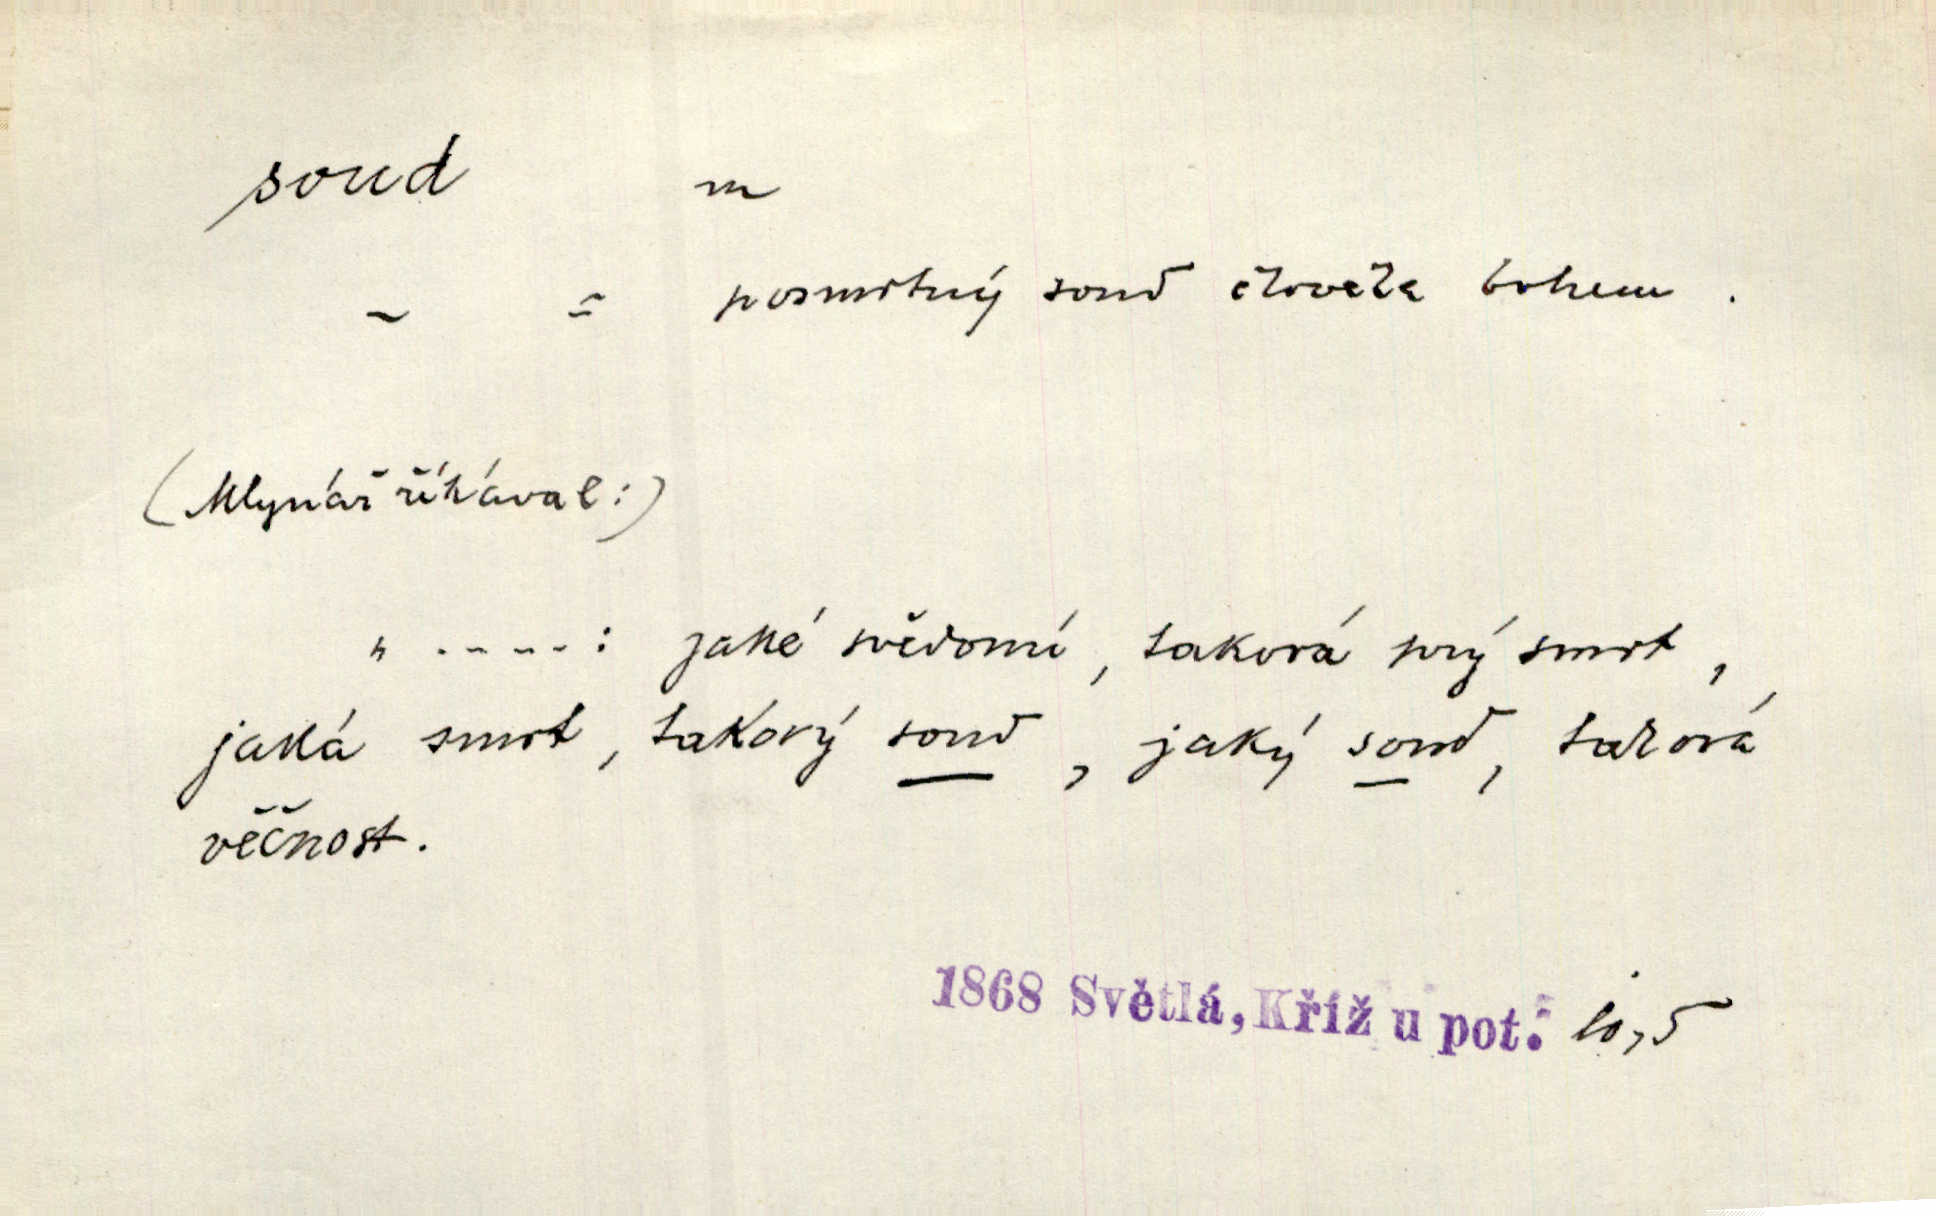 soud m
~ = posmrtný soud člověka bohem .
(Mlynář říkával:)
" - - - - - : jaké svědomí , taková prý smrt ,
jaká smrt , takový soud , jaký soud , taková
věčnost .
1868 Světlá, Kříž u pot. 10,5